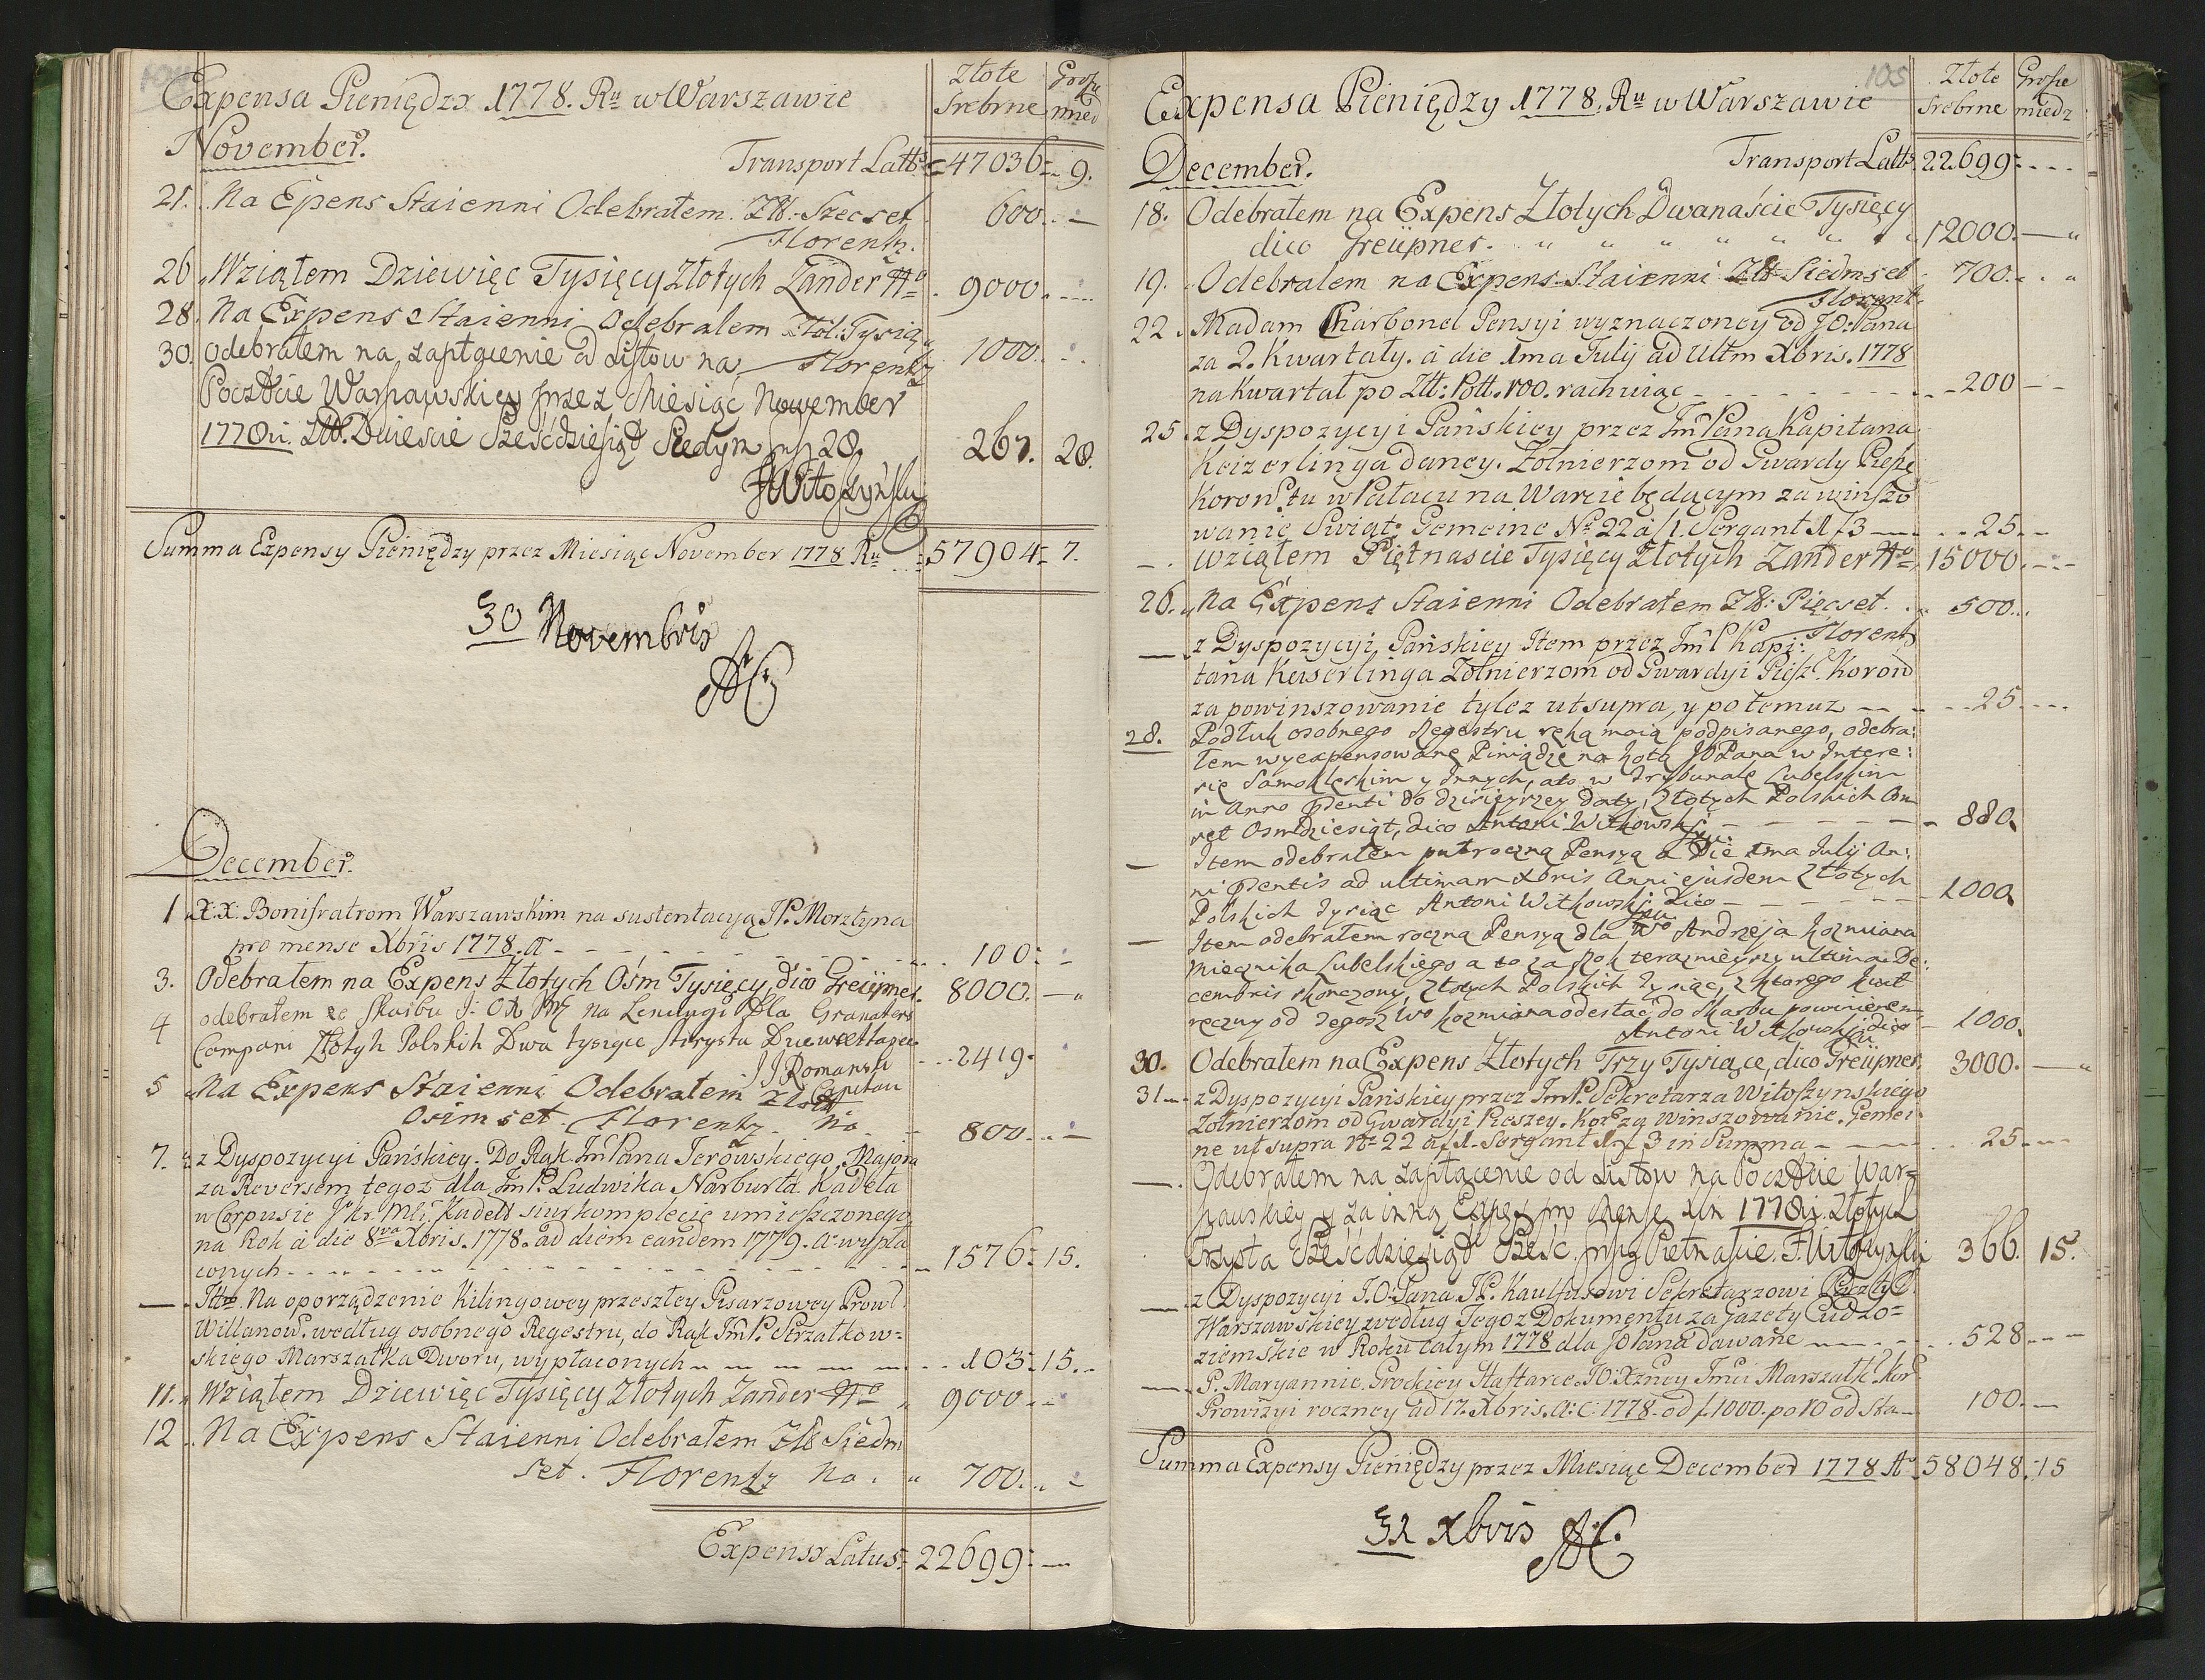 104
Expensa Pieniędzy 1778. Ru w Warszawie
Złote Srebrne
Grosze mied
November.
Transport Latt. 47036 9.
21. Na Expens Staienni Odebrałem. Złt. Szecset 600.
Florentz.
26 Wziąłem Dziewięc Tysięcy Złotych Zander 9000.
28. Na Expens Staienni Odebrałem Złot: Tysiąc 1000.
Florentz
30. Odebrałem na zapłacenie od Listow na
Poczcie Warszawskiey przez Miesiąc Nowember
1778i. Złt. Dwiescie Sześćdziesiąt Siedym 28. 267. 28.
FWitoszyński
Summa Expensy Pieniędzy przez Miesiąc November 1778 Ru 57904 7.
30 Novembris
December.
1 X.X. Bonifratrom Warszawskim na sustentacyą JP. Morztyna
pro mense Xbris 1778. A 100
3. Odebrałem na Expens Złotych Ośm Tysięcy, dico Greüpner. 8000.
4 odebrałem ze Skarbu na Lenungi Dla Granaters
Compani Złotyh Polskih Dwa tysiące sterysta Dziewettascie 2419.
JJ Romanski
Capitan
5 Na Expens Staienni Odebrałem Złot
Osimset. Florentz. 800.
7. z Dyspozycyi Pańskiey. Do Rąk Jm Pana Jerowskiego Majora
za Reversem tegoż dla Jm P. Ludwika Narburta Kadeta
w Corpusie Kadett siurkomplecie umieszczonego
na Rok a die 8va Xbris. 1778. ad diem eandem 1779. A. wypła
conych 1576. 15.
Itto. Na oporządzenie Kilingowey przeszłey Pisarzowey Prowl.
Willanow. według osobnego Regestru, do Rąk Jm P. Strzałkow=
skiego Marszałka Dworu, wypłaconych 103. 15.
11. Wziąłem Dziewięc Tysięcy Złotych Zander 9000
12 Na Expens Staienni Odebrałem Złt Siedm
set. Florentz 700.
Expensy Latus. 22699.
105
Expensa Pieniędzy 1778. Ru w Warszawie
Złote Srebrne
Grosze miedz
December.
Transport Latt. 22699.
18. Odebrałem na Expens Złotych Dwanaście Tysięcy
dico Greüpner. 12000.
19. Odebrałem na Expens Staienni Złt Siedmset 700.
Florent.
22. Madam Charbonel Pensyi wyznaczoney od JO: Pana
za 2. Kwartały. a die 1ma Julij ad Ultm Xbris. 1778
na Kwartał po Złt: Poll. 100. rachuiąc 200
25. z Dyspozycyi Pańskiey przez Jm Pana Kapitana
Keizerlinga daney. Żołnierzom od Gwardy Piesze
Koron tu w Pałacu na Warcie będącym za winszo
wanie Swiąt. Gemeine No 22 a f 1. Sergant 1 f 3 25.
Wziąłem Piętnascie Tysięcy Złotych Zander 15000.
26. Na Expens Staienni Odebrałem Złt: Pięcset. 500.
Florentz
z Dyspozycyi Pańskiey Item przez Jm P Kapi:
tana Keiserlinga Żołnierzom od Gwardyi Piesz. Koron
za powinszowanie tylez ut supra, y po temuz 25.
28. Podług osobnego Regestru ręką moią podpisanego, odebra:
łem wyexpensowane Piniądze na Kotą JO Pana w Intere:
sie Samokleskim y Innych, ato w Trybunale Lubelskim
in Anno pdenti do dzisieyszey daty, Złotych Polskich Om
set Osmdziesiąt, dico Antoni Witkowski 880.
Item odebrałem pułroczną Pensyą a Die 1ma Julij An:
ni pdentis ad ultimam Xbris Anni ejusdem Złotych
Polskich Tysiąc Antoni Witkowski dico 1000
Item odebrałem roczną Pensyą dla Wo Andrzeja Kozmiana
Miecznika Lubelskiego a to za Rok terazniejszy ultima De:
cembris skonczony, Złotych Polskich Tysiąc, z ktorego kwit
ręczny od tegosz Wo Kozmiana odesłać do Skarbu powinienem
Antoni Witkowski dico 1000.
30. Odebrałem na Expens Złotych Trzy Tysiące, dico Greüpner. 3000.
31. z Dyspozycyi Pańskiey przez Jm P. Sekretarza Witoszynskiego
Żołnierzom od Gwardyi Pieszey. Kor za Winszowanie. Gemei
ne ut supra No 22 a f 1. Sergant 1 f 3 in Summa 25.
Odebrałem na zapłacenie od Listow na Poczcie War=
szawskiey y za inną Expens pro Mense Xbr 1778i. Złotych
Trzysta Sześćdziesiąt Sześć Pietnascie. F. Witoszynski 366. 15.
z Dyspozycyi J.O: Pana JP. Kaulfusowi Sekretarzowi Poczty
Warszawskiey według Tegoz Dokumentu za Gazety Cudzo=
ziemskie w Roku całym 1778 dla JO Pana dawane 528
P. Maryannie Grockiey Haftarce JO: Xzney Jmci Marszałk. Kor
Prowizyi roczney ad 17. Xbris. A: C: 1778. od f 1000. po 10 od sta 100.
Summa Expensy Pieniędzy przez Miesiąc December 1778 A 58048. 15
31 Xbris